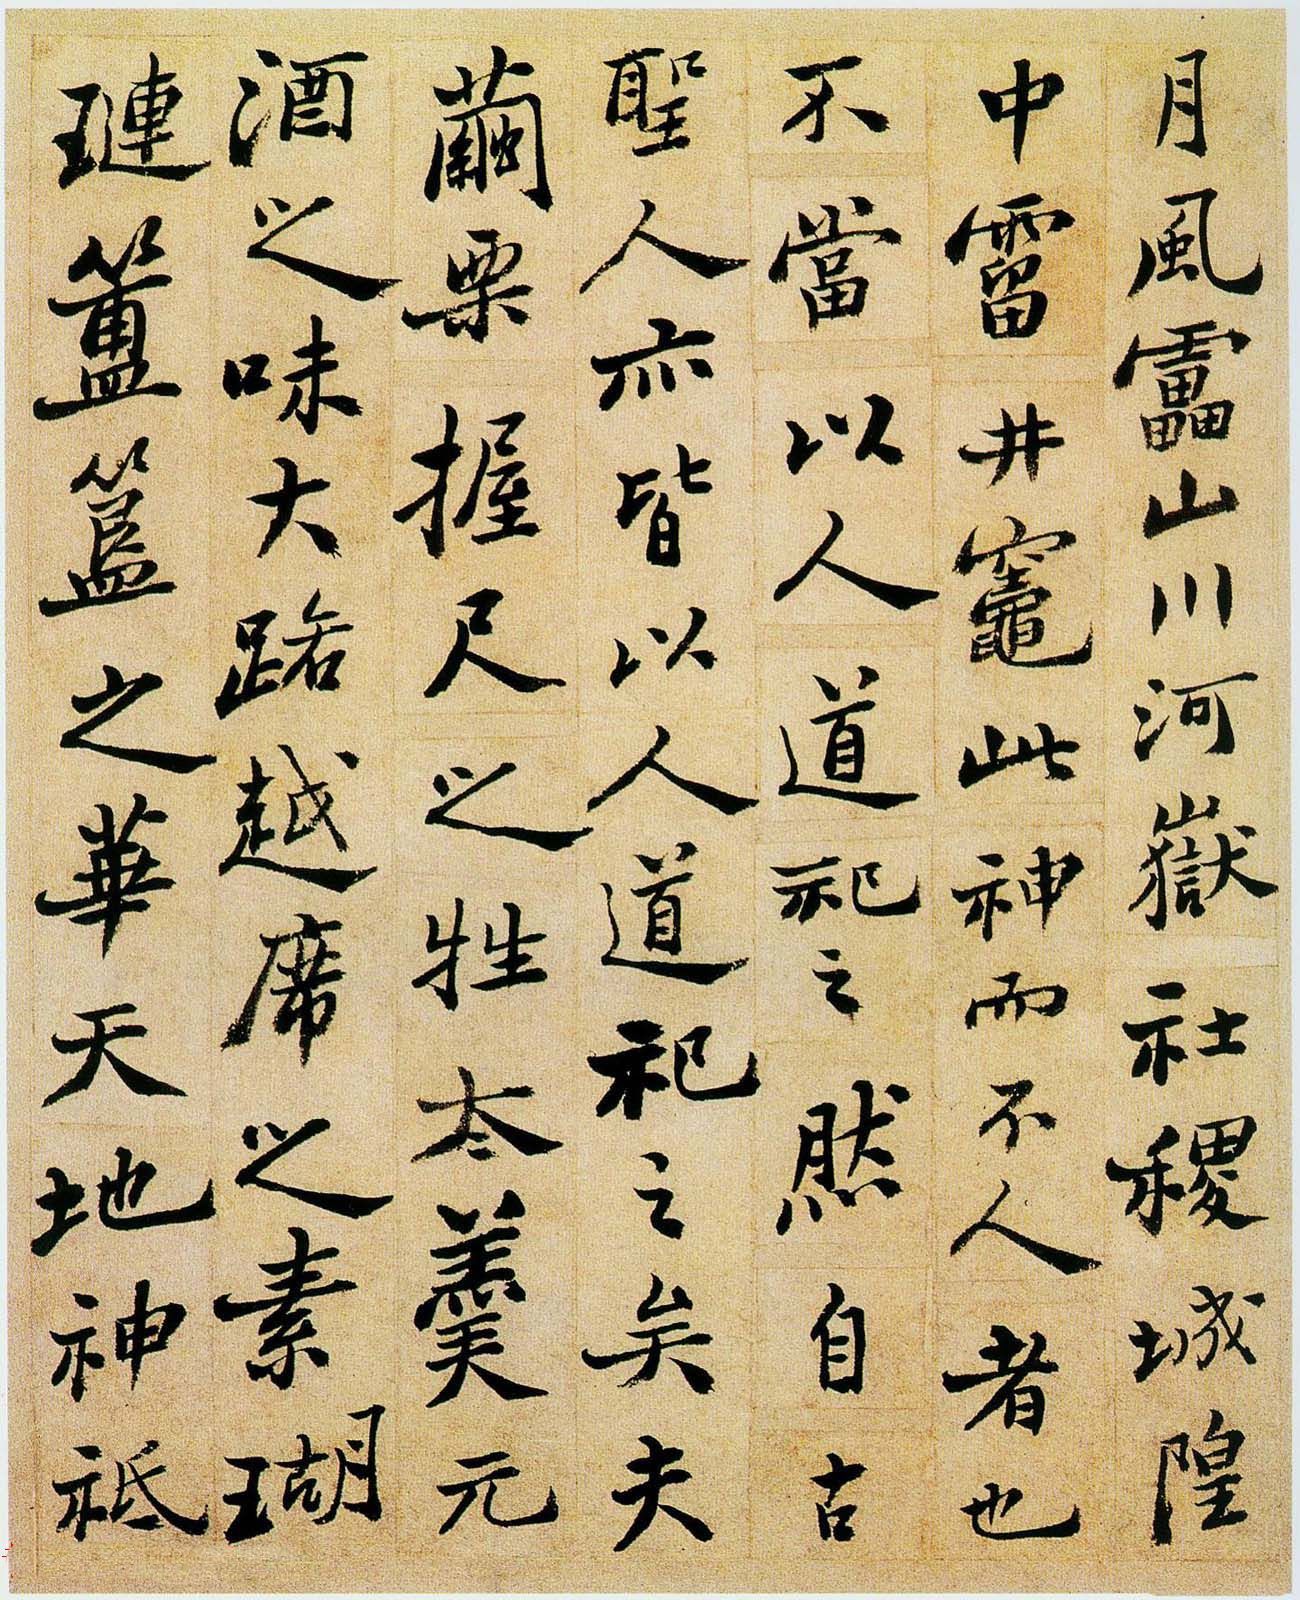 月風靁山川河嶽社稷城隍
中霤井竈此神而不人者也
不當以人道祀之然自古
聖人亦皆以人道祀之矣夫
繭栗握尺之牲太羹元
酒之味大路越席之素瑚
璉簠簋之華天地神祇